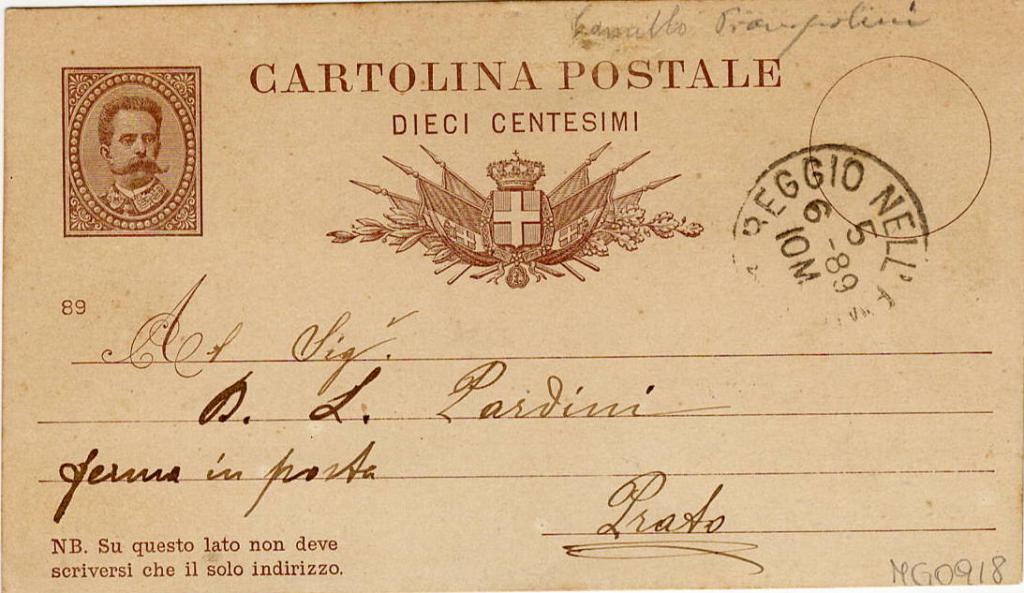 Camillo Prampolini
CARTOLINA POSTALE
DIECI CENTESIMI
REGGIO NELL'
6 5 -89
10M
89
Al Sigʳ.
D. L. Pardini
ferma in posta
Prato
NB. Su questo lato non deve
scriversi che il solo indirizzo.
MG0918